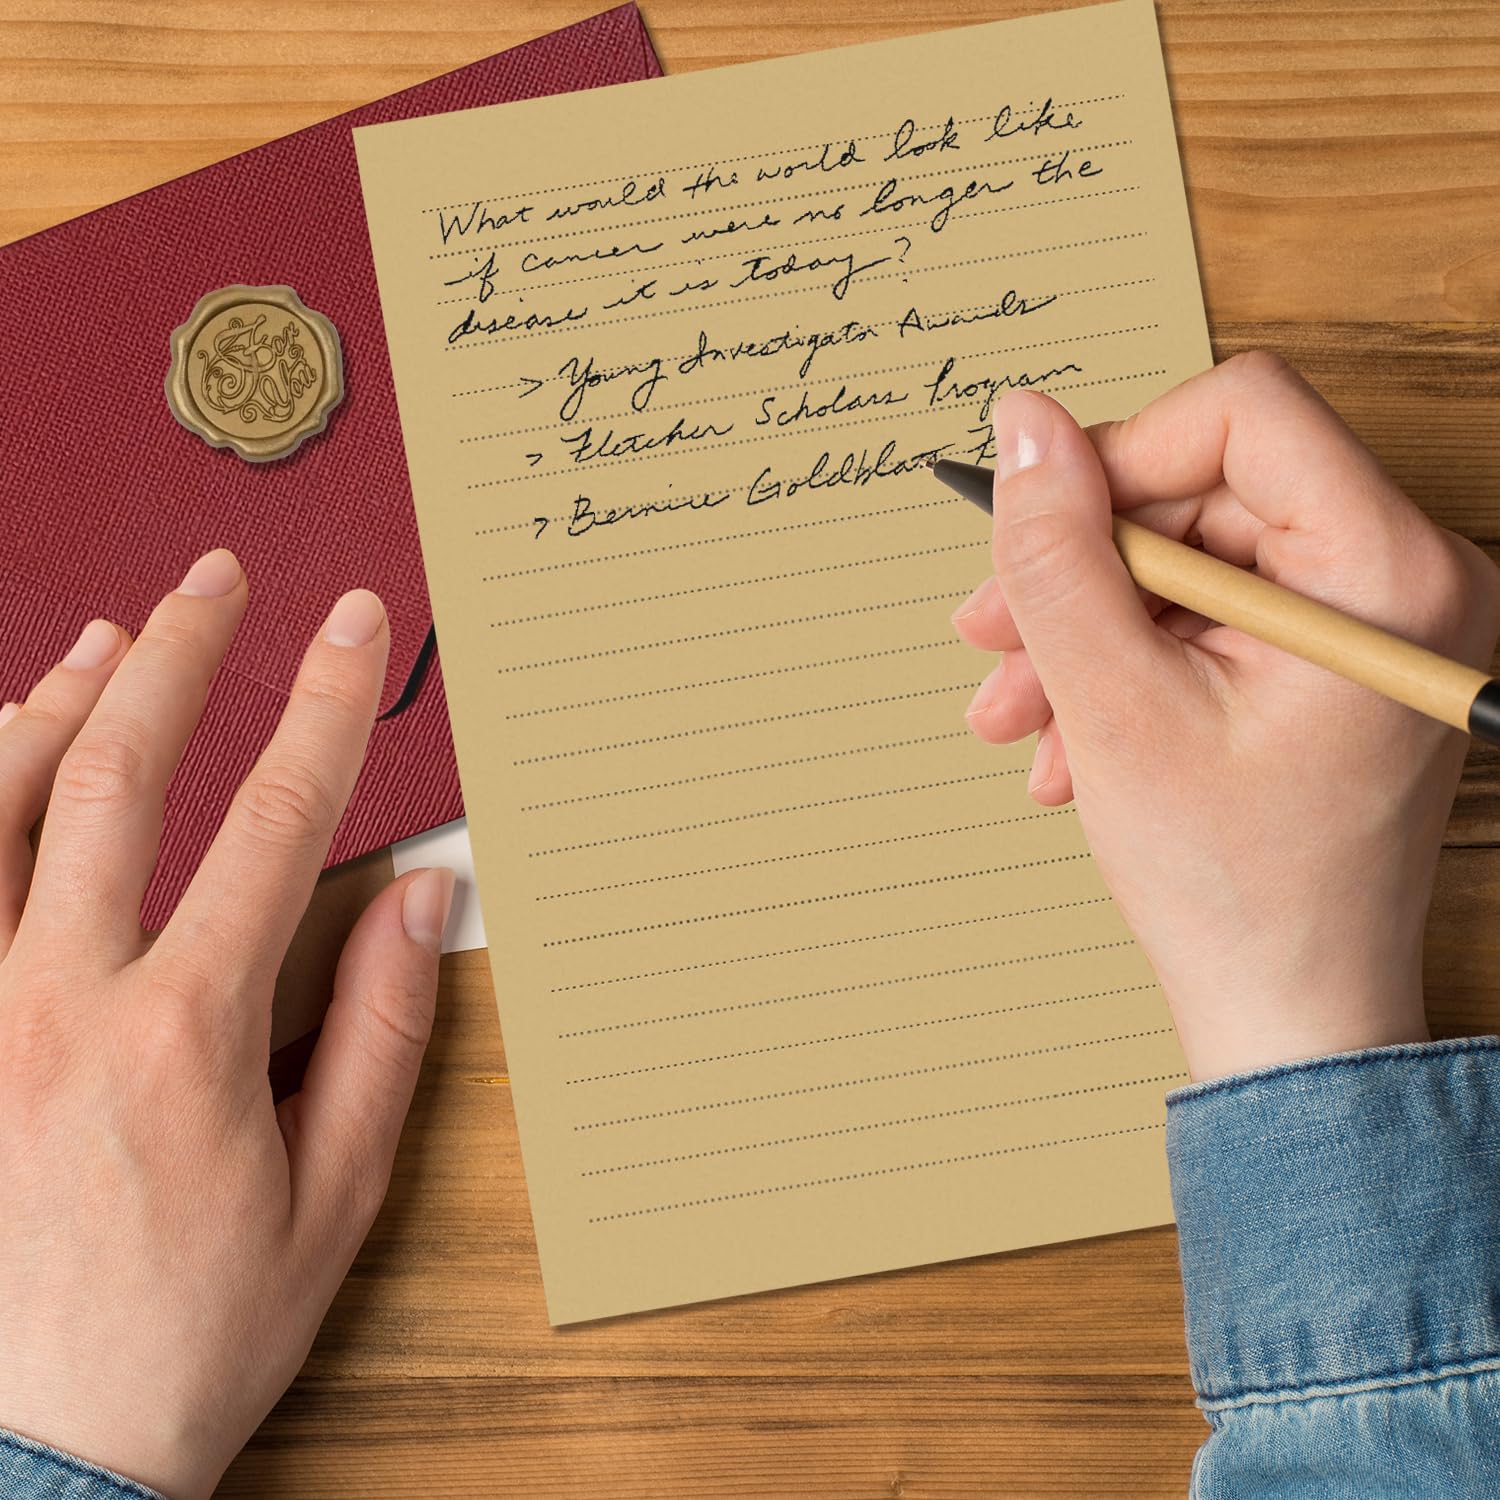 For
You
What would the world look like
if cancer were no longer the
disease it is today?
> Young Investigator Awards
> Fletcher Scholars Program
> Bernice Goldblatt F